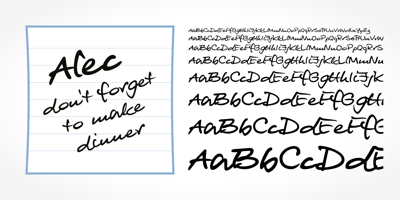 Alec
don't forget
to make
dinner
AaBbCcDdEeFfGgHhIiJjKkLlMmNnOoPpQqRrSsTtUuVvWwXxYyZz
AaBbCcDdEeFfGgHhIiJjKkLlMmNnOoPpQqRrSsTtUuVvWw
AaBbCcDdEeFfGgHhIiJjKkLlMmNnOoPpQqRrSs
AaBbCcDdEeFfGgHhIiJjKkLlMmNn
AaBbCcDdEeFfGgHhIiJjK
AaBbCcDdEeFfGgHh
AaBbCcDdEeFfG
AaBbCcDdE